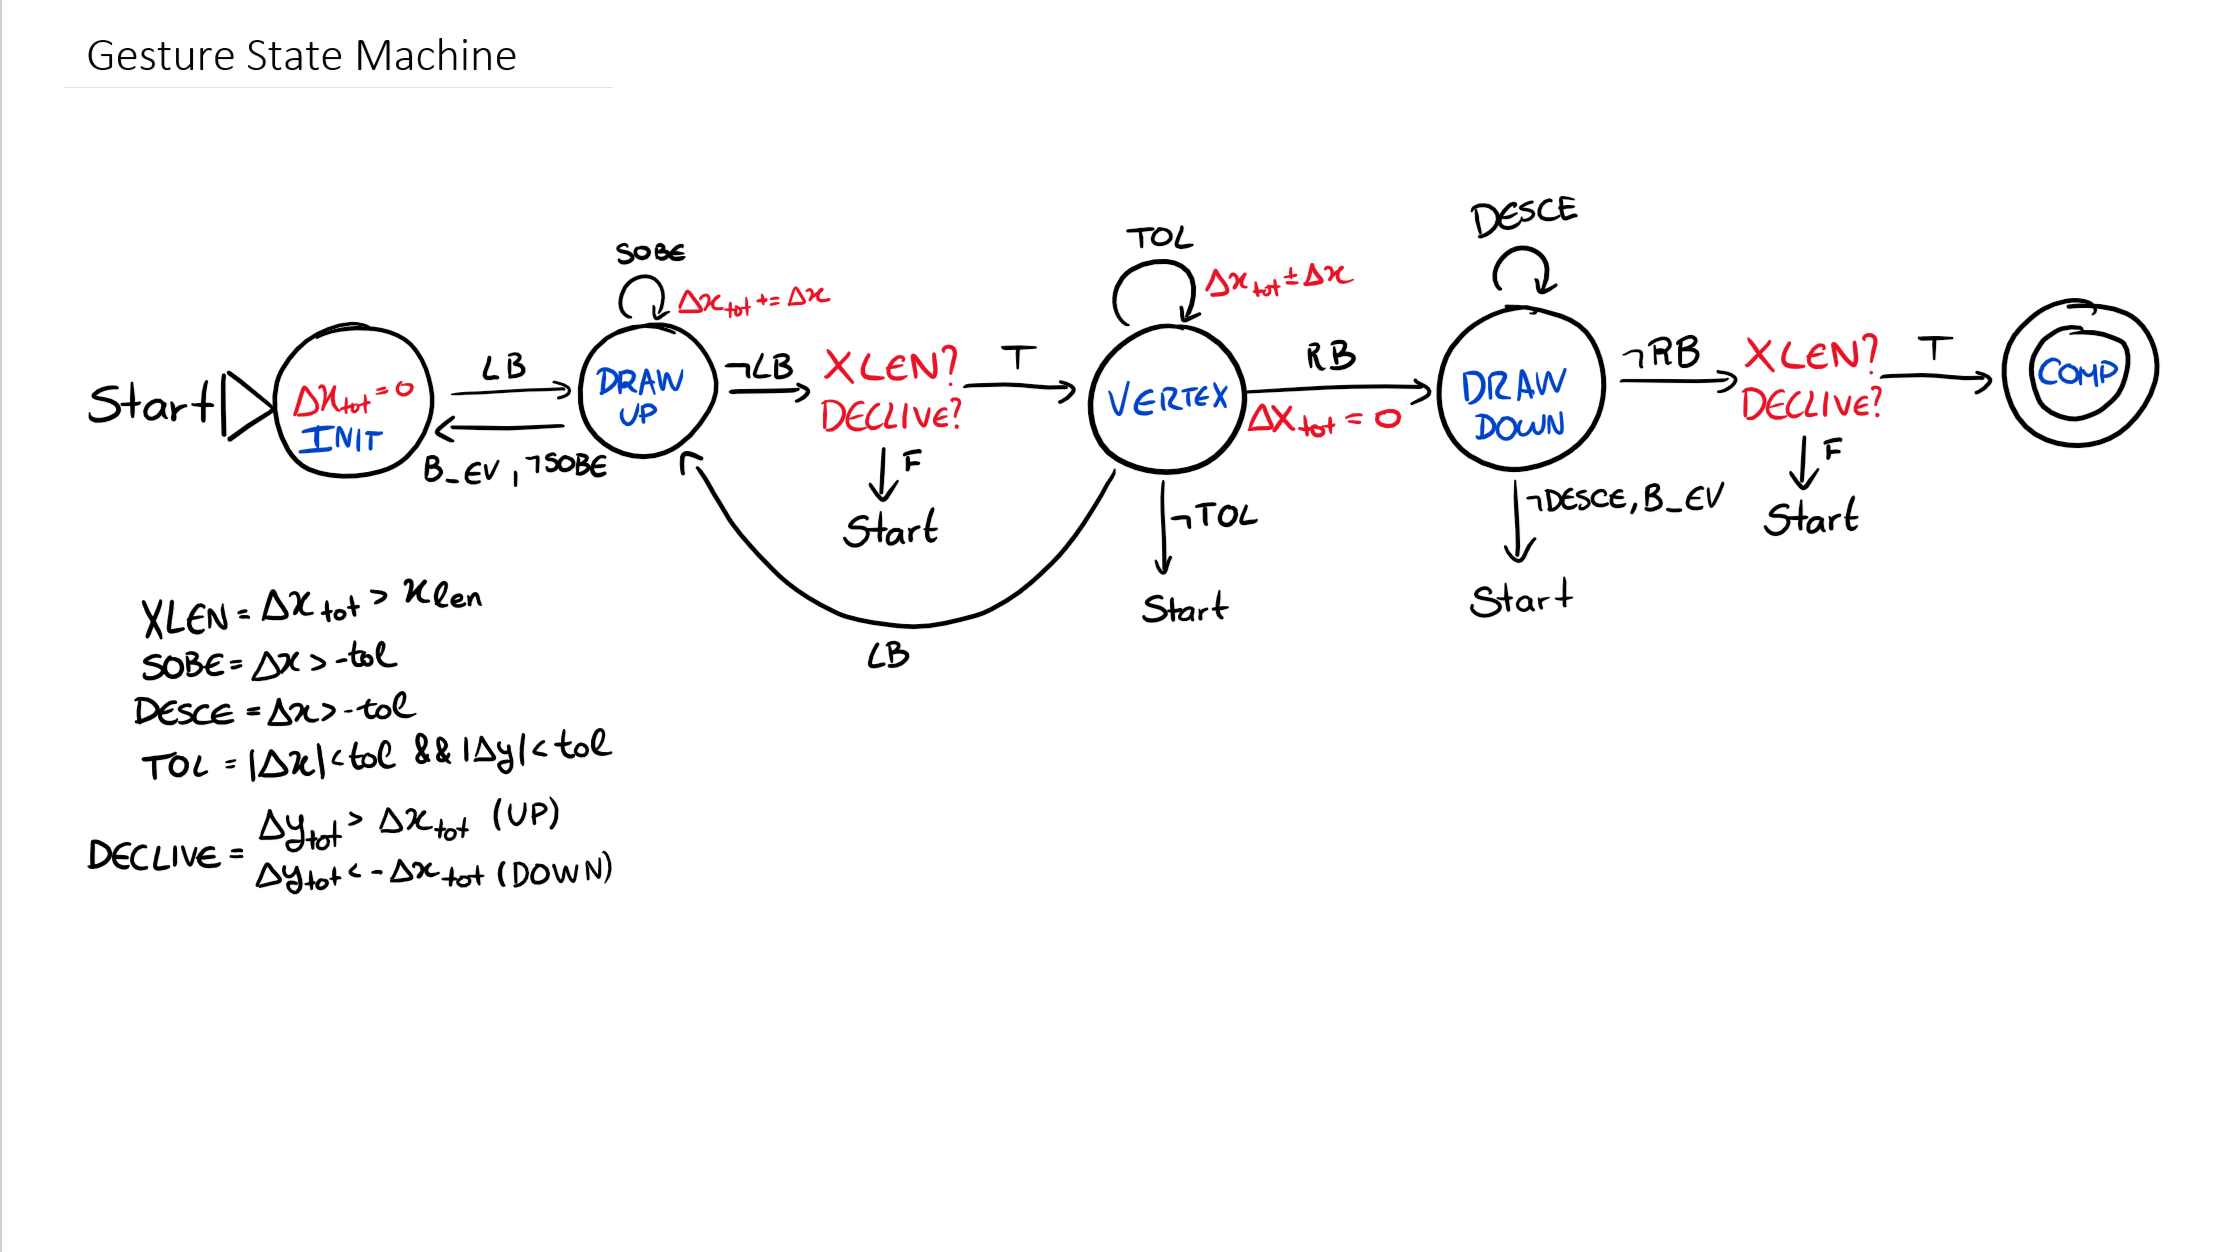 Gesture State Machine
Start
Δxtot=0
INIT
LB
B_EV, ¬SOBE
SOBE
Δxtot += Δx
DRAW
UP
¬LB
XLEN?
DECLIVE?
T
F
Start
TOL
Δxtot ± Δx
VERTEX
LB
¬TOL
Start
RB
ΔXtot = 0
DESCE
DRAW
DOWN
¬DESCE, B_EV
Start
¬RB
XLEN?
DECLIVE?
T
F
Start
COMP
XLEN = Δxtot > xlen
SOBE = Δx > -tol
DESCE = Δx > -tol
TOL = |Δx| < tol && |Δy| < tol
DECLIVE =
Δytot > Δxtot (UP)
Δytot < -Δxtot (DOWN)